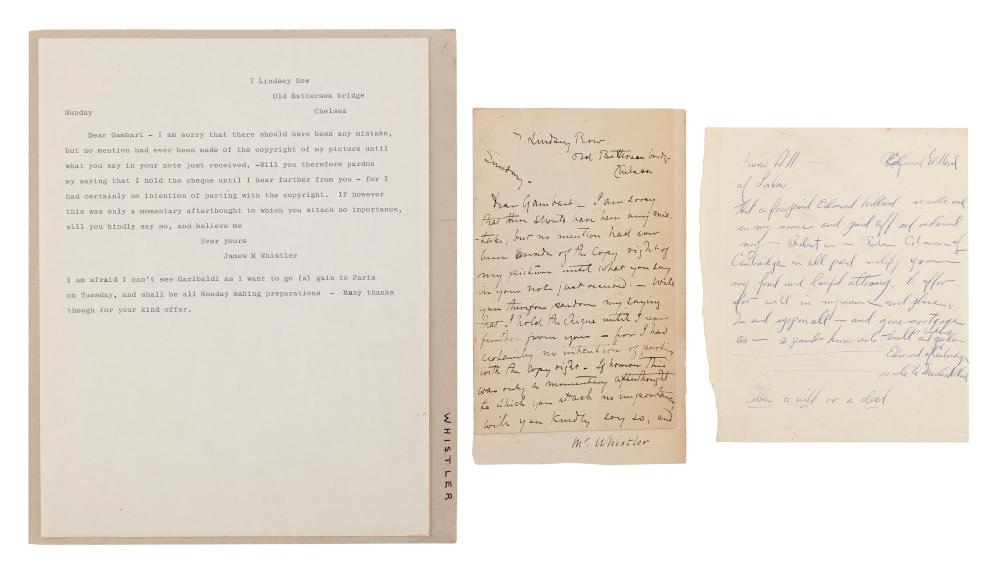 7 Lindsey Row
Old Battersea bridge
Sunday Chelsea
Dear Gambart - I am sorry that there should have been any mistake,
but no mention had ever been made of the copyright of my picture until
what you say in your note just received. -Will you therefore pardon
my saying that I hold the cheque until I hear further from you - for I
had certainly no intention of parting with the copyright. If however
this was only a momentary afterthought to which you attach no importance,
will you kindly say so, and believe me
Ever yours
James M Whistler
I am afraid I can't see Garibaldi as I want to go (a) gain to Paris
on Tuesday, and shall be all Monday making preparations - Many thanks
though for your kind offer.
WHISTLER
7 Lindsey Row.
Old Battersea bridge
Chelsea
Sunday.
Dear Gambart - I am sorry
that there should have been any mis
take, but no mention had ever
been made of the Copy right of
my picture until what you say
in your note just received. - Will
you therefore pardon my saying
that I hold the cheque until I hear
further from you - for I had
certainly no intention of parting
with the Copy right - If however this
was only a momentary afterthought
to which you attach no importance,
will you kindly say so, and
Mr. Whistler
Edmund Willard
of
that a Edmund Willard
in my name and paid off and
my - in -
Cambridge in all paid notify
my fond and lawful attorney, to
for will in my name and
and - and give mortgage
as -
Edmund
a will or a deed